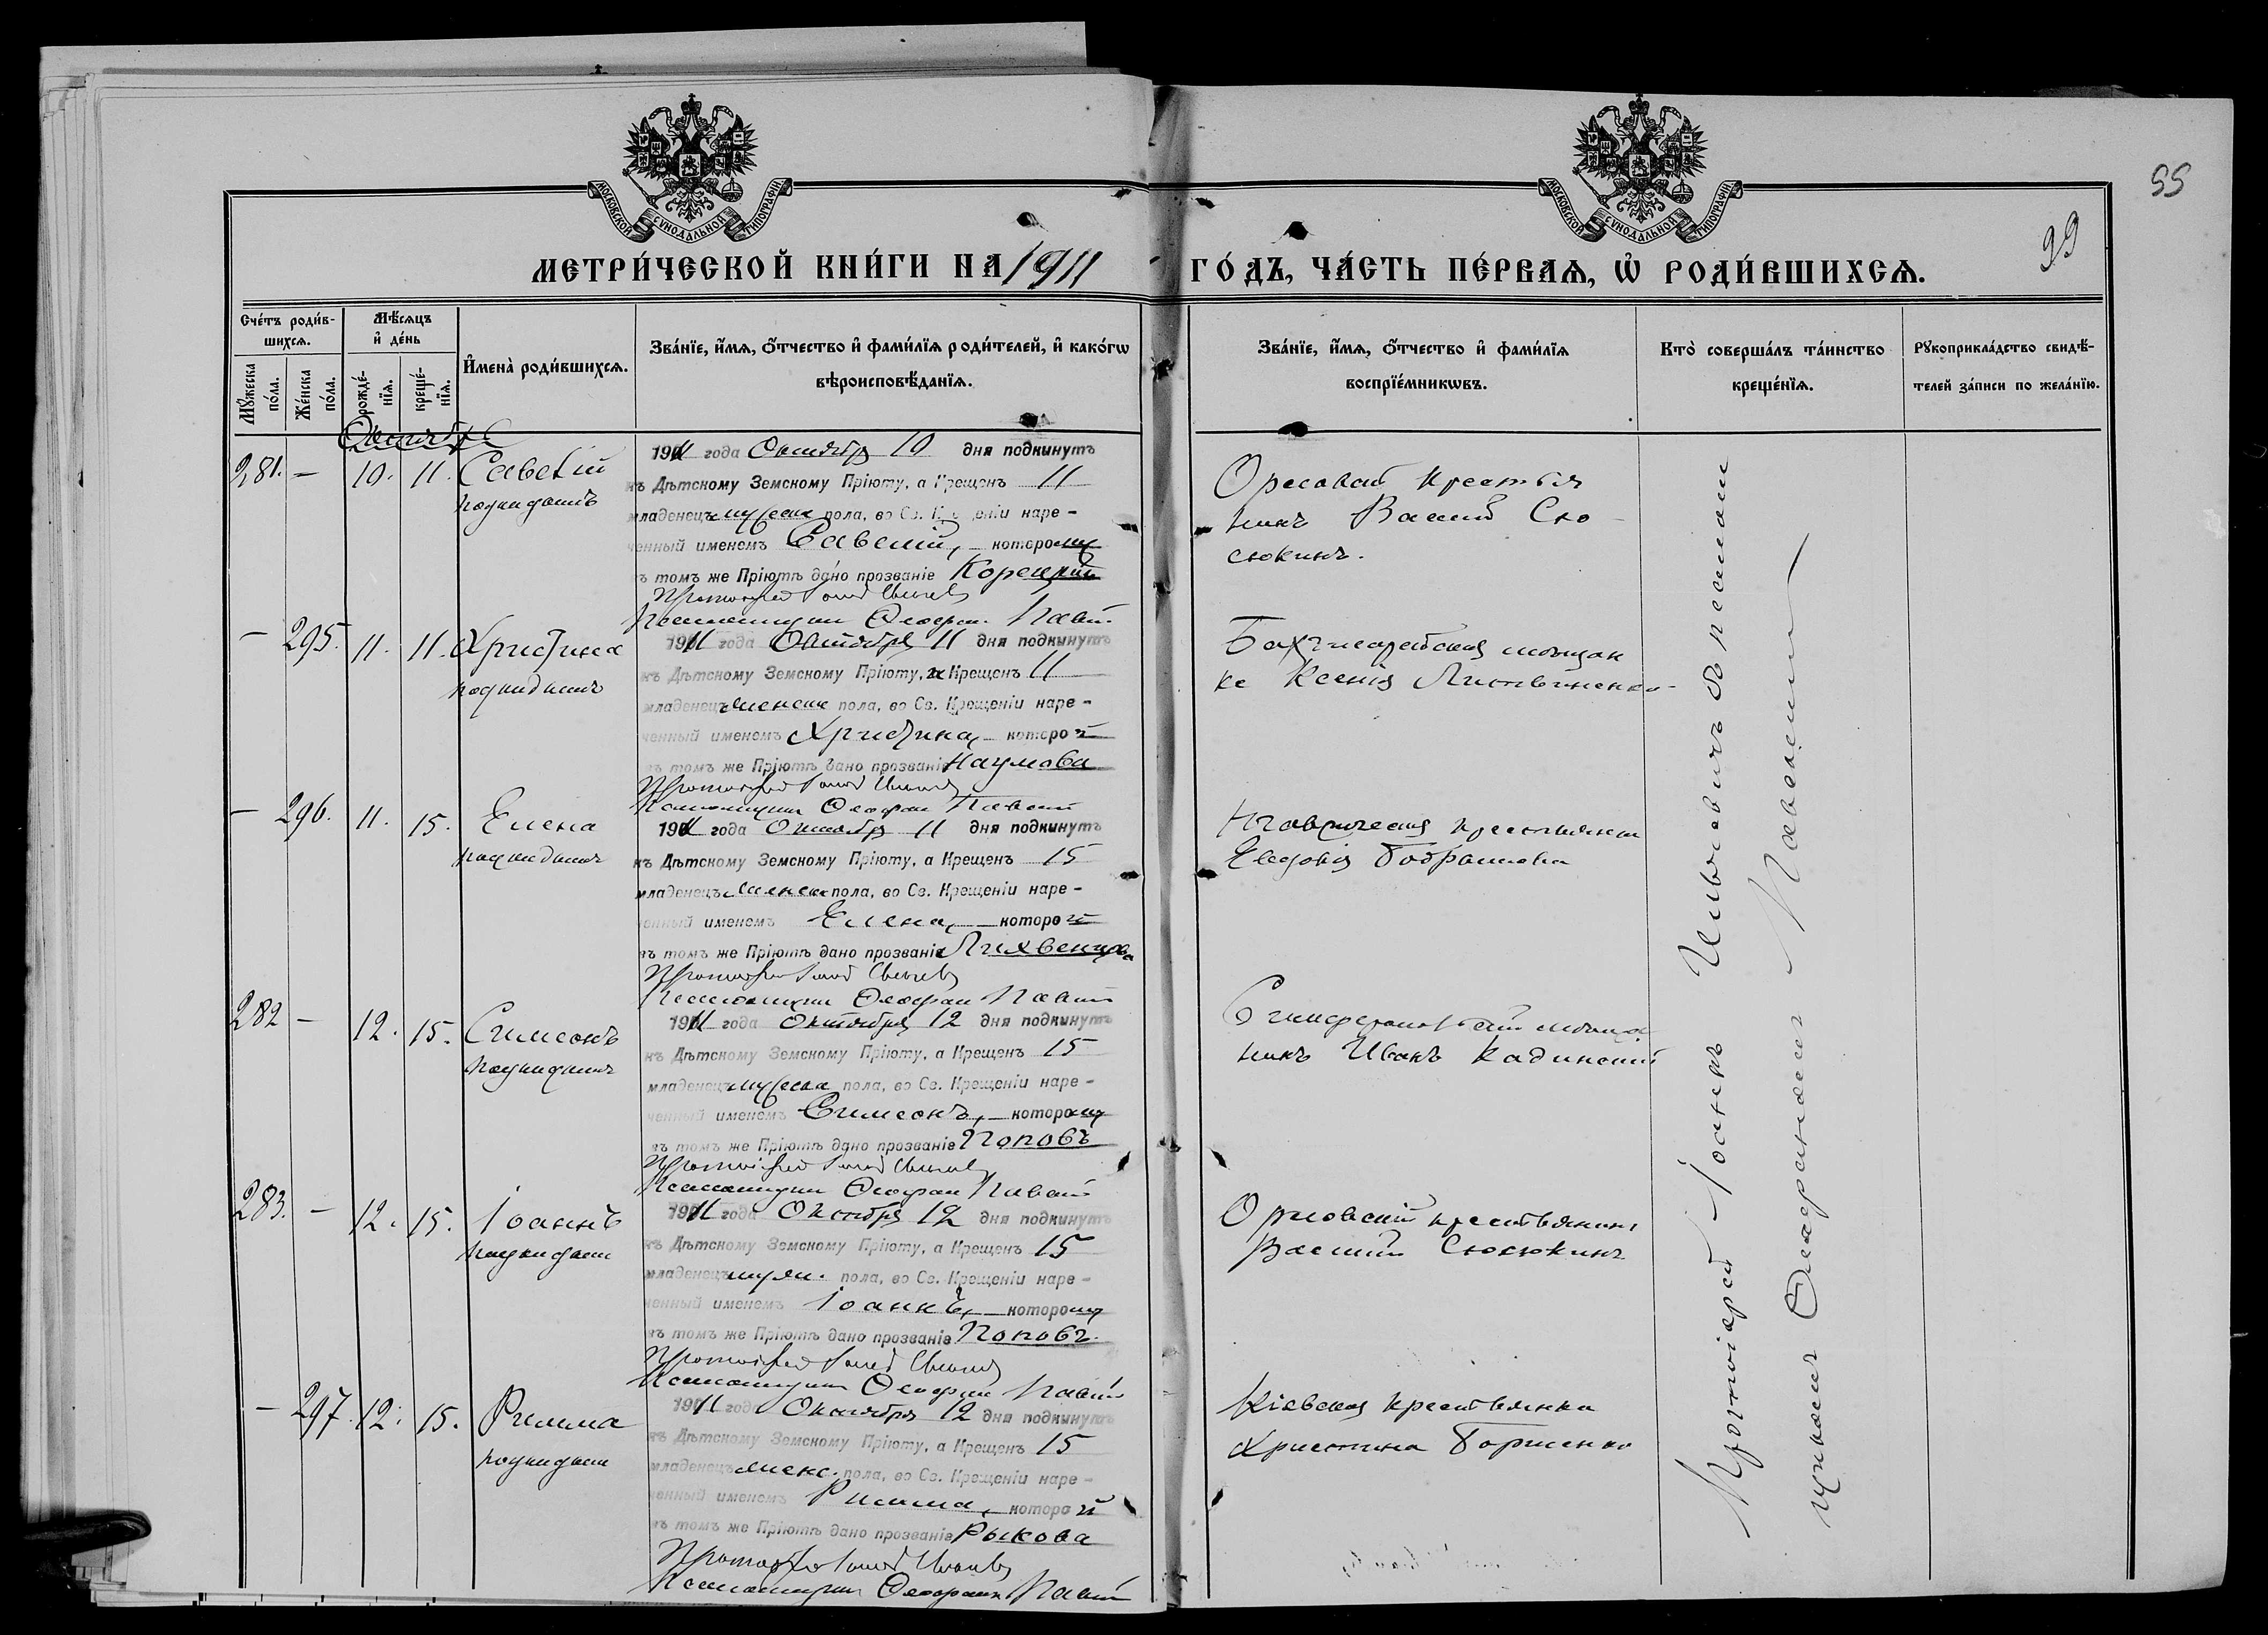 55
99
МОСКОВСКОЙ СѴНОДАЛЬНОЙ ТИПОГРАФІИ
МОСКОВСКОЙ СѴНОДАЛЬНОЙ ТИПОГРАФІИ
МЕТРИ́ЧЕСКОЙ КНИ́ГИ НА 1911 ГО́ДЪ, ЧА́СТЬ ПЕ́РВАѦ, Ѡ҆ РОДИ́ВШИХСѦ.
Сче́тъ роди́в-
шихсѧ.
Мꙋ́жеска по́ла.
Же́нска по́ла.
Мѣ́сѧцъ
и҆ де́нь
рожде́-
нїѧ.
креще́-
нїѧ.
И҆мена̀ роди́вшихсѧ.
Зва́нїе, и҆́мѧ, ѻ҆́тчество и҆ фами́лїѧ роди́телей, и҆ како́гѡ
вѣроисповѣ́данїѧ.
Зва́нїе, и҆́мѧ, ѻ҆́тчество и҆ фами́лїѧ
воспрїе́мникѡвъ.
Кто̀ соверша́лъ та́инство
креще́нїѧ.
Рꙋкоприкла́дство свидѣ́-
телей за́писи по жела́нїю.
Октябрь
281. — 10. 11. Савелій
подкидышъ
1911 года Октября 10 дня подкинутъ
къ Дѣтскому Земскому Пріюту, а Крещенъ 11
младенецъ мужеска пола, во Св. Крещеніи наре-
ченный именемъ Савелій, которому
въ томъ же Пріютѣ дано прозваніе Корецкій
Протоіерей
Псаломщикъ
Орловскій крестья
нинъ Василій Сю-
сюкинъ.
— 295. 11. 11. Христина
подкидышъ
1911 года Октября 11 дня подкинутъ
къ Дѣтскому Земскому Пріюту, а Крещенъ 11
младенецъ женска пола, во Св. Крещеніи наре-
ченный именемъ Христина, которой
въ томъ же Пріютѣ дано прозваніе Наумова
Протоіерей
Псаломщикъ
Бахчисарайская мѣщан
ка Ксенія Литвиненко
— 296. 11. 15. Елена
подкидышъ
1911 года Октября 11 дня подкинутъ
къ Дѣтскому Земскому Пріюту, а Крещенъ 15
младенецъ женска пола, во Св. Крещеніи наре-
ченный именемъ Елена, которой
въ томъ же Пріютѣ дано прозваніе Лихвенцова
Протоіерей
Псаломщикъ
крестьянка
Евдокія
282 — 12. 15. Симеонъ
подкидышъ
1911 года Октября 12 дня подкинутъ
къ Дѣтскому Земскому Пріюту, а Крещенъ 15
младенецъ мужеска пола, во Св. Крещеніи наре-
ченный именемъ Симеонъ, которому
въ томъ же Пріютѣ дано прозваніе Поповъ
Протоіерей
Псаломщикъ
Симферопольскій мѣща
нинъ Иванъ Кадинскій
283. — 12. 15. Іоаннъ
подкидышъ
1911 года Октября 12 дня подкинутъ
къ Дѣтскому Земскому Пріюту, а Крещенъ 15
младенецъ муж. пола, во Св. Крещеніи наре-
ченный именемъ Іоаннъ, которому
въ томъ же Пріютѣ дано прозваніе Поповъ.
Протоіерей
Псаломщикъ
Орловскій крестьянинъ
Василій Сюсюкинъ
— 297. 12. 15. Римма
подкидышъ
1911 года Октября 12 дня подкинутъ
къ Дѣтскому Земскому Пріюту, а Крещенъ 15
младенецъ женс. пола, во Св. Крещеніи наре-
ченный именемъ Римма, которой
въ томъ же Пріютѣ дано прозваніе Рыкова
Протоіерей
Псаломщикъ
Кіевская крестьянка
Христина Борисенко
Протоіерей Іоаннъ съ псалом
щикомъ